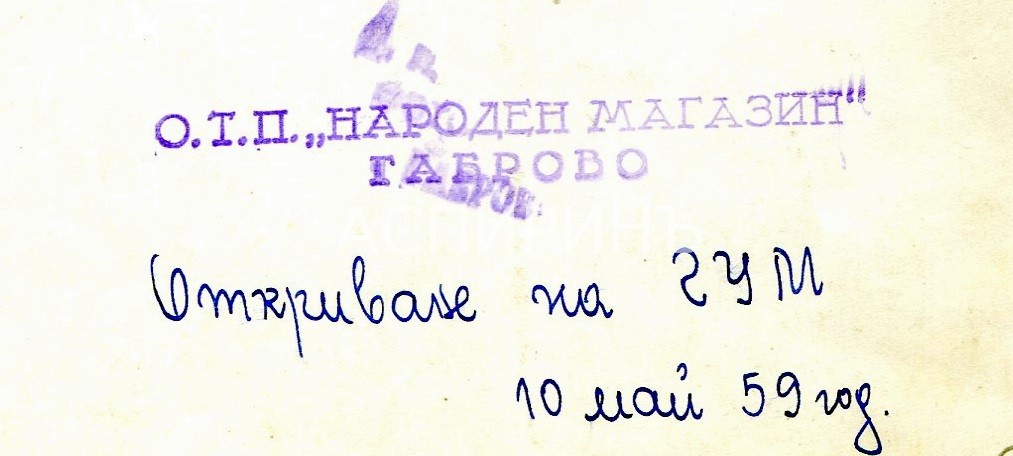 О.Т.П. „НАРОДЕН МАГАЗИН“
ГАБРОВО
АСПИРИНЪ
Откриване на ГУМ
10 май 59 год.